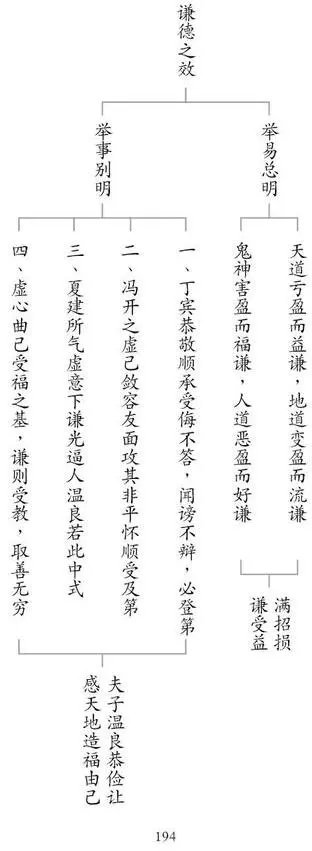 谦德之效
举易总明
天道亏盈而益谦，地道变盈而流谦
鬼神害盈而福谦，人道恶盈而好谦
满招损
谦受益
举事别明
一、丁宾恭敬顺承受侮不答，闻谤不辩，必登第
二、冯开之虚己敛容友面攻其非平怀顺受及第
三、夏建所气虚意下谦光逼人温良若此中式
四、虚心曲己受福之基，谦则受教，取善无穷
夫子温良恭俭让
感天地造福由己
194